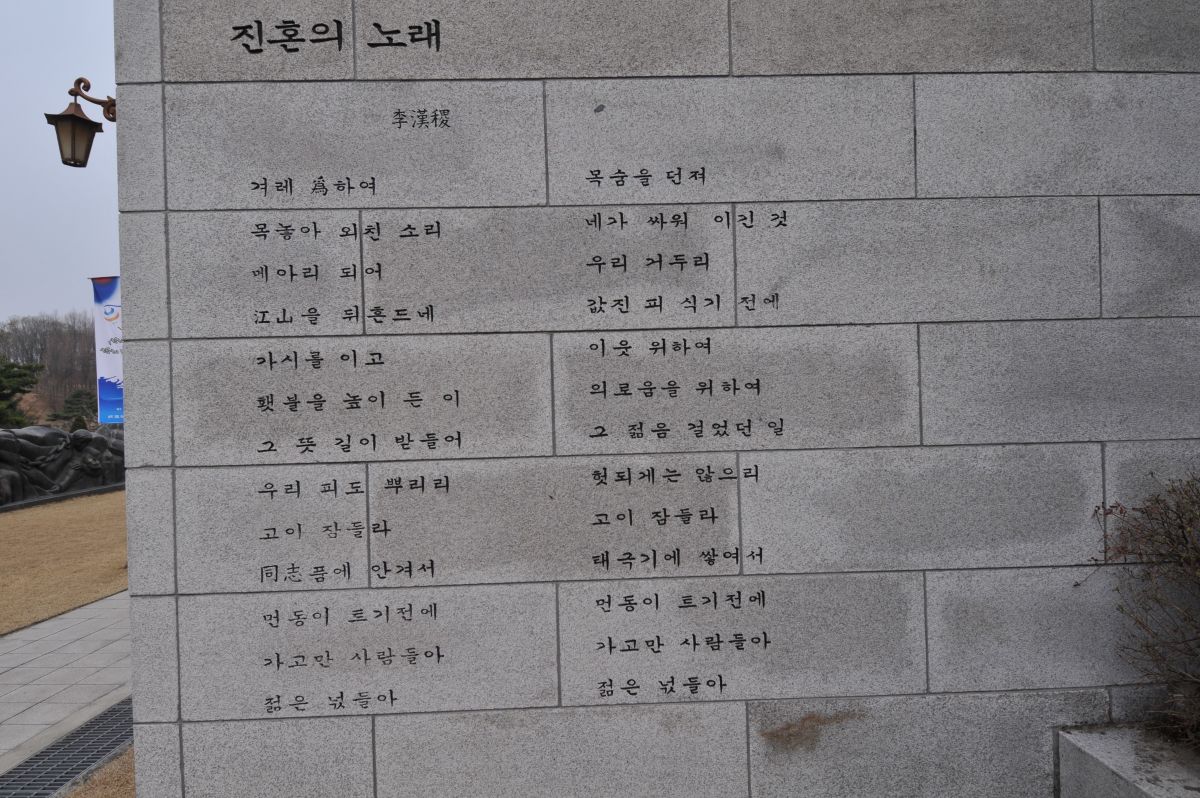 진혼의 노래
李漢稷
겨레 爲하여
목놓아 외친 소리
메아리 되어
江山을 뒤흔드네
가시를 이고
횃불을 높이 든 이
그 뜻 길이 받들어
우리 피도 뿌리리
고이 잠들라
同志품에 안겨서
먼동이 트기전에
가고만 사람들아
젊은 넋들아
목숨을 던져
네가 싸워 이긴 것
우리 거두리라
값진 피 식기 전에
이웃 위하여
의로움을 위하여
그 젊음 걸었던 일
헛되게는 않으리
고이 잠들라
태극기에 쌓여서
먼동이 트기전에
가고만 사람들아
젊은 넋들아